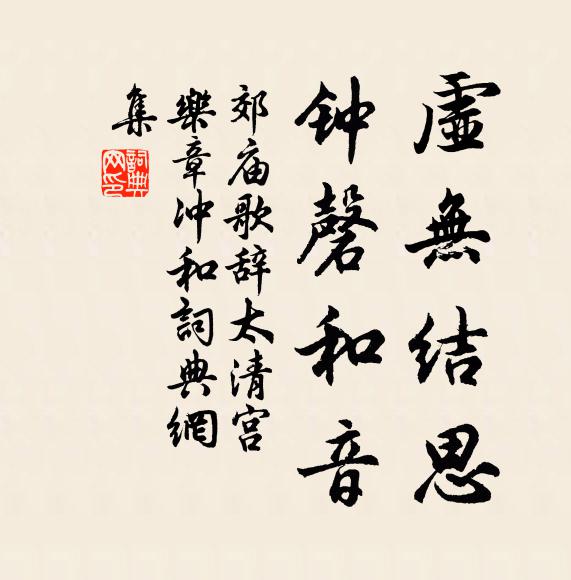 虛無結思
钟磬和音
郊庙歌辞太清宫
樂章冲和詞典網
集
詞典網印